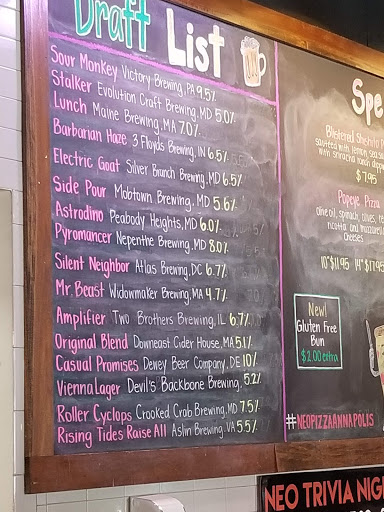 Draft List
Sour Monkey Victory Brewing, PA 9.5%
Stalker Evolution Craft Brewing, MD 5.0%
Lunch Maine Brewing, MA 7.0%
Barbarian Haze 3 Floyds Brewing, IN 6.5%
Electric Goat Silver Branch Brewing, MD 6.5%
Side Pour Mobtown Brewing, MD 5.6%
Astrodino Peabody Heights, MD 6.0%
Pyromancer Nepenthe Brewing, MD 8.0%
Silent Neighbor Atlas Brewing, DC 6.7%
Mr. Beast Widowmaker Brewing, MA 4.7%
Amplifier Two Brothers Brewing, IL 6.7%
Original Blend Downeast Cider House, MA 5.1%
Casual Promises Dewey Beer Company, DE 10%
Vienna Lager Devil's Backbone Brewing, 5.2%
Roller Cyclops Crooked Crab Brewing, MD 7.5%
Rising Tides Raise All Aslin Brewing, VA 5.5%
Spe
Blistered Shishito P
sauteed with lemon, sea s
with sriracha ranch dippi
$7.95
Popeye Pizza
olive oil, spinach, olives,
ricotta and mozzarella
cheeses
10" $11.95 14" $17.95
New!
Gluten Free
Bun
$2.00 extra
#NEOPIZZAANNAPOLIS
NEO TRIVIA NIG